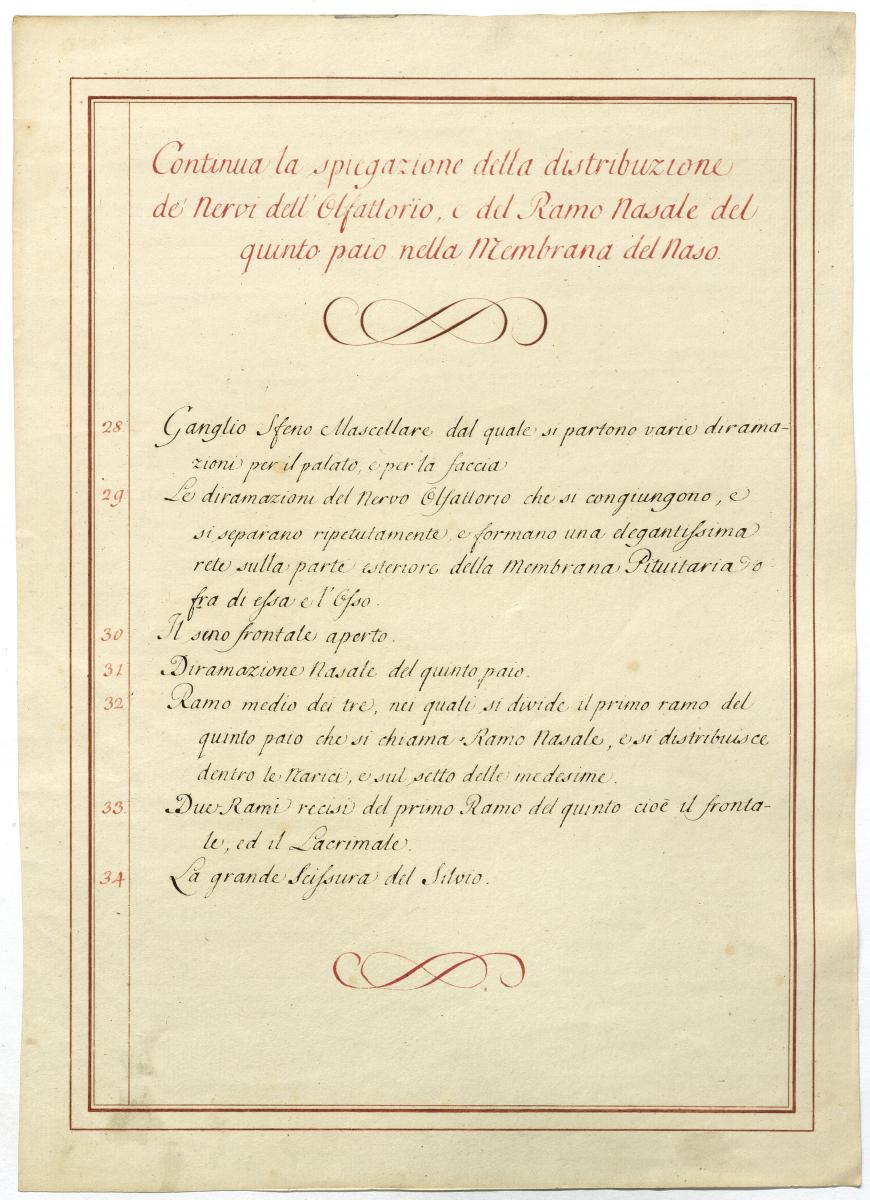 Continua la spiegazione della distribuzione
de' Nervi dell' Olfattorio, e del Ramo Nasale del
quinto paio nella Membrana del Naso.
28 Ganglio Sfeno Mascellare dal quale si partono varie dirama-
zioni per il palato, e per la faccia
29 Le diramazioni del Nervo Olfattorio che si congiungono, e
si separano ripetutamente, e formano una elegantissima
rete sulla parte esteriore della Membrana Pituitaria o
fra di essa e l'Osso.
30 Il seno frontale aperto.
31 Diramazione Nasale del quinto paio.
32 Ramo medio dei tre, nei quali si divide il primo ramo del
quinto paio che si chiama Ramo Nasale, e si distribuisce
dentro le Narici, e sul setto delle medesime.
33 Due Rami recisi del primo Ramo del quinto cioè il fronta-
le, ed il Lacrimale.
34 La grande Scissura del Silvio.